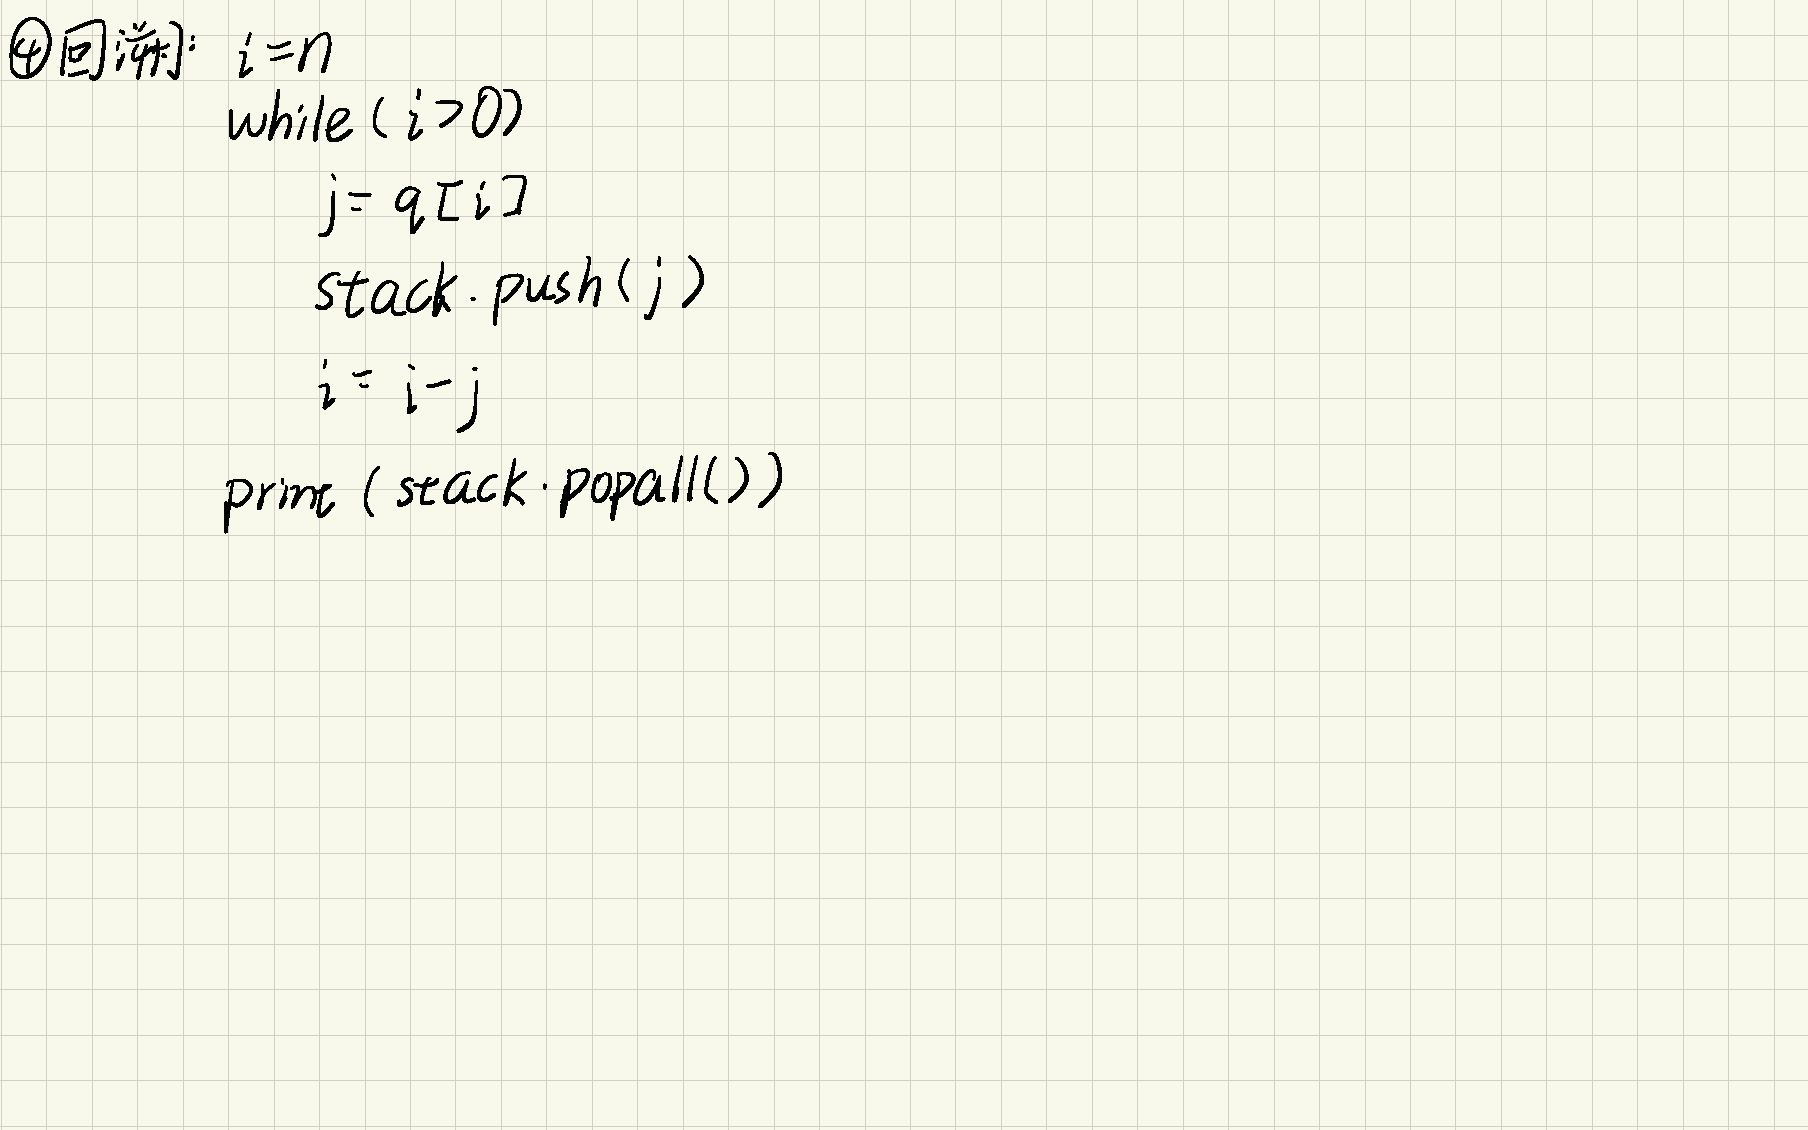 ④回溯: i=n
while(i>0)
j=q[i]
stack.push(j)
i=i-j
print(stack.popall())